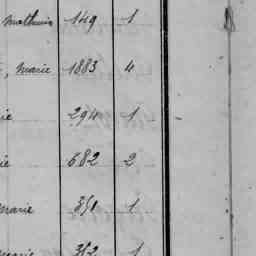 Mathurin 149 1
, Marie 1883 4
ie 294 1
ie 682 2
Marie 351 1
Marie 312 1